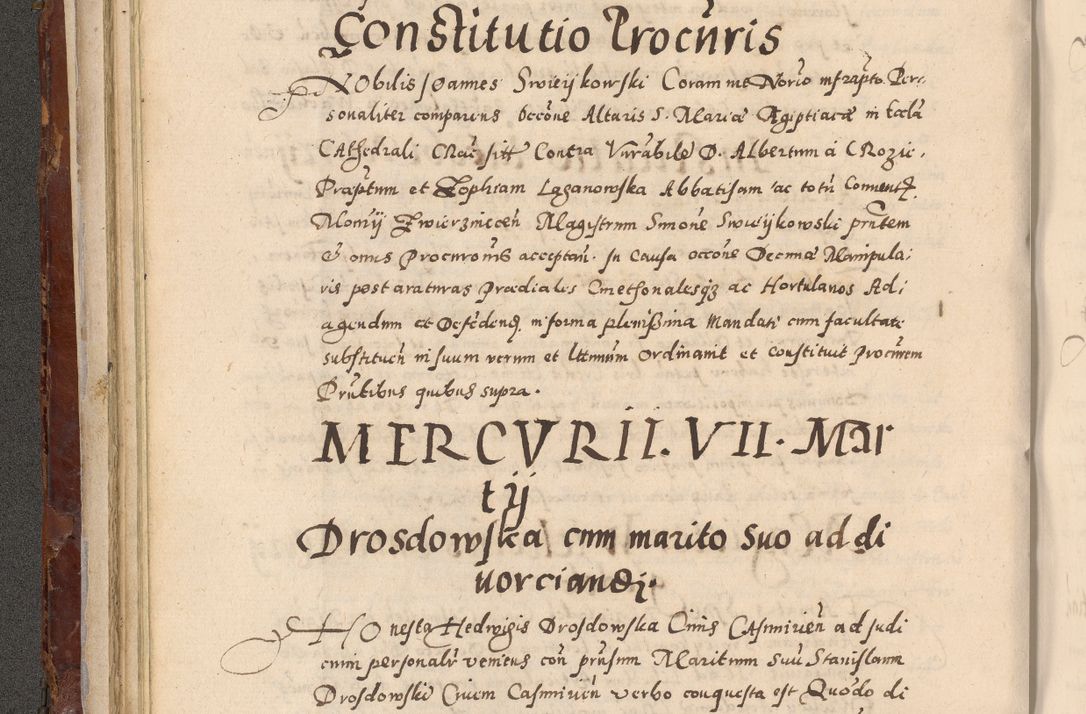 Constitutio Procuris
NObilis Joannes Swieijkowski Coram me Norio infrapto Per-
sonaliter comparens occone Altaris S. Mariæ Ægiptiacæ in Eccla
CAthedrali CRac sitt Contra Vnrabile D. Albertum à CRozic,
Præptum et Zophiam Laganowska Abbatisam ac totu Conuent
Monry Zwierziniecen Magistrum Simone Swieijkowski prntem
& onus Procuronis acceptan. In Causa occone Decimæ Manipula,
ris post araturas Prædiales Cmethonalesqz ac Hortulanos Ad,
agendum et Defedend in forma plenißima Mandati cum facultate
substituen in suum verum et lttmum Ordinauit et constituit Procurem
Prntibus quibus supra.
MERCVRII. VII. Mar
tij
Drosdowska cum marito suo ad di
uorciand.
HOnesta Hedwigis Drosdowska Ciuis CAsmirien ad Judi
cium personalr veniens con prnsum Maritum suu Stanislaum
Drosdowski Ciuem Casmirien verbo conquesta est Quodo di